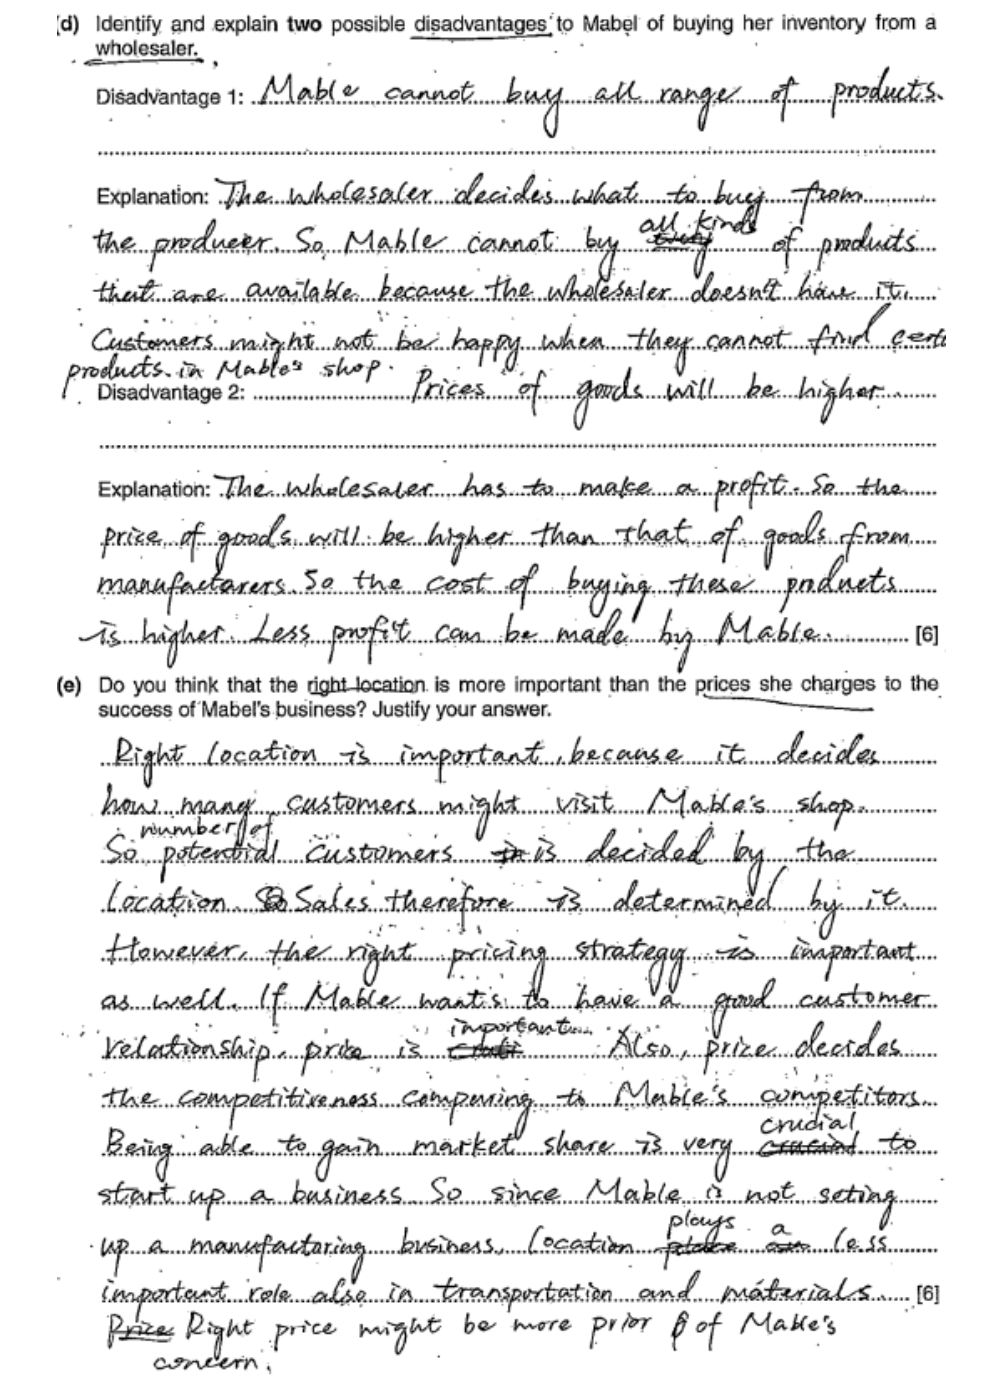 (d) Identify and explain two possible disadvantages to Mabel of buying her inventory from a
wholesaler.
Disadvantage 1: Mable cannot buy all range of products.
Explanation: The wholesaler decides what to buy from
the producer. So Mable cannot by all kinds of products
that are available because the wholesaler doesn't have it.
Customers might not be happy when they cannot find certa
products in Mable's shop.
Disadvantage 2: Prices of goods will be higher
Explanation: The wholesaler has to make a profit. So the
price of goods will be higher than that of goods from
manufactarers. So the cost of buying these products
is higher. Less profit can be made by Mable. [6]
(e) Do you think that the right location is more important than the prices she charges to the
success of Mabel's business? Justify your answer.
Right location is important, because it decides
how many customers might visit Mable's shop.
So number of potential customers is decided by the
location. Sales therefore is determined by it.
However, the right pricing strategy is important
as well. If Mable wants to have a good customer
relationship, price is important. Also, price decides
the competitiveness comparing to Mable's competitors.
Being able to gain market share is very crucial to
start up a business. So since Mable is not seting
up a manufactoring business, location plays a less
important role also in transportation and materials. [6]
Right price might be more prior of Mable's
concern.